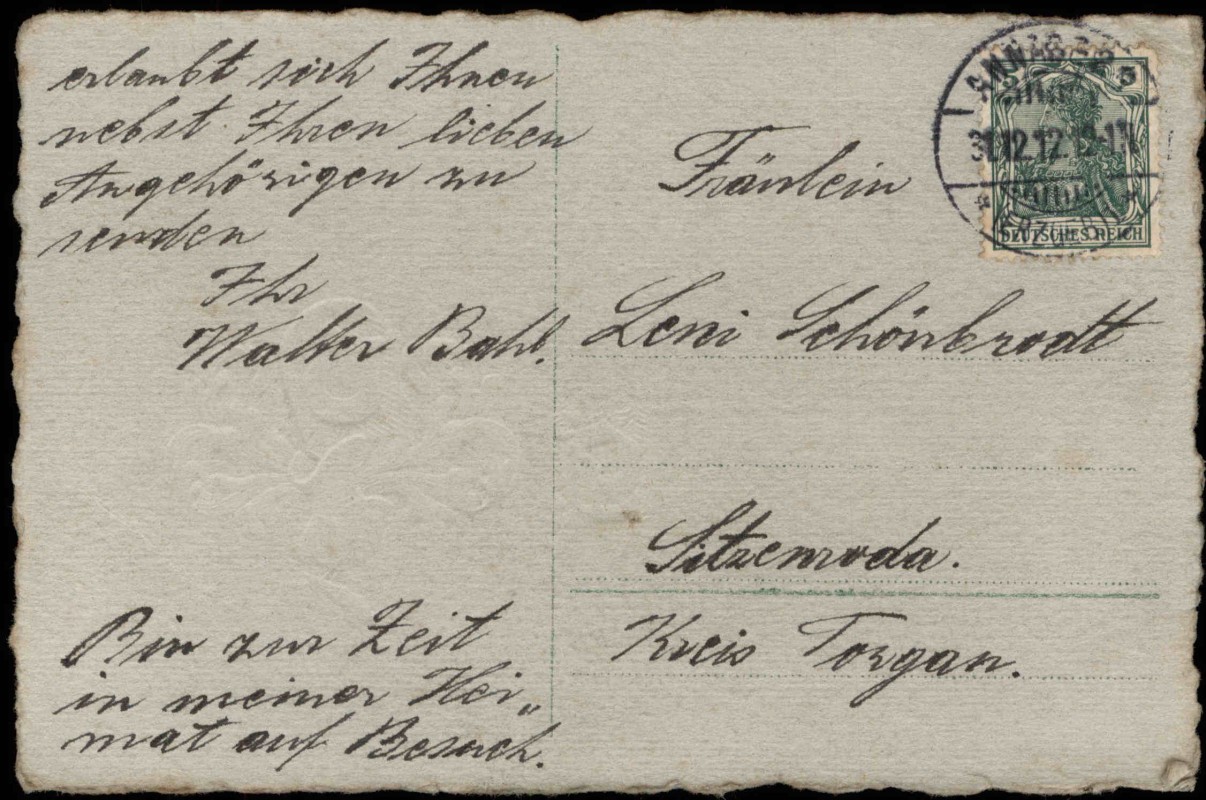 erlaubt sich Ihnen
nebst Ihren lieben
Angehörigen zu
senden
Ihr
Walter Bahl.
Bin zur Zeit
in meiner Hei„
mat auf Besuch.
Fräulein
Leni Schönbrodt
Sitzenroda.
Kreis Torgau.
31.12.12.
5
DEUTSCHES REICH